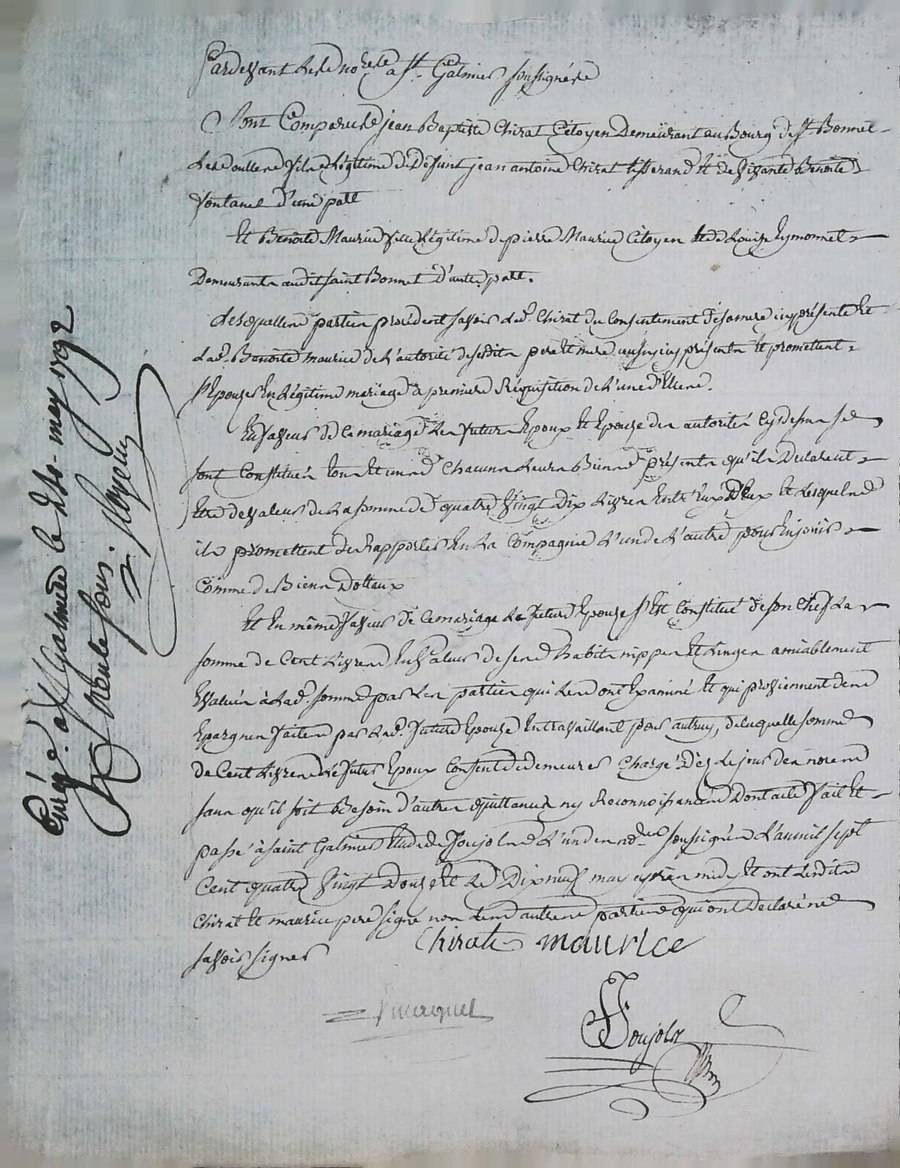 Pardevant Les no.res a St. Galmier soussignés
Sont Comparus jean Baptiste Chirat Citoyen Demeurant au Bourg de St Bonnet
Les oulles fils Légitime de Défunt jean antoine Chirat tisserand et de vivante Benoite
fontanel d'une part
Et Benoite Maurice fille Légitime de pierre Maurice Citoyen et de Louize Eymonnet
Demeurants audit saint Bonnet d'autre part.
Lesquelles parties procédent savoir Led. Chirat du Consentement de sa mere icy présente Et
Lad. Benoite maurice de L'autorité de sesdits pere et mere aussy icy présents Et promettent
s'Epouser En Légitime mariage a premiere Réquisition de L'une d'Elles.
En faveur de Ce mariage Les futurs Epoux Et Epouze des autorités Cy dessus se
sont Constitués tous Et uns Chacuns Leurs Biens présents qu'ils Declarent
Etre de valeur de La somme de quatre vingt Dix Livres Entre Eux Deux Et Lesquels
ils promettent de Rapporter En La Compagnie L'un de L'autre pour En jouir
Comme de Biens Dottaux
Et En même faveur de Ce mariage La future Epouze s'Est Constitué de son Chef La
somme de Cent Livres En valeur de ses habits nippes Et Linges amiablement
Evalués à Lad. somme par Les parties qui Les ont Examiné Et qui proviennent des
Epargnes faites par Lad. future Epouze En travaillant pour autruy, de laquelle somme
de Cent Livres Le futur Epoux Consent de demeurer Chargé Dès Le jour des noces
sans qu'il soit Besoin d'autres quittances ny Reconnoissances Dont acte fait Et
passé à saint Galmier Etude de Poujols L'un des no.res soussignés L'an mil sept
Cent quatre vingt Douze Et Le Dix neuf may après midy Et ont Lesdits
Chirat Et maurice pere signé non Les autres parties qui ont Déclaré ne
savoir signer
Chirat maurice
Poujols
Enreg. a St Galmier le may 1792